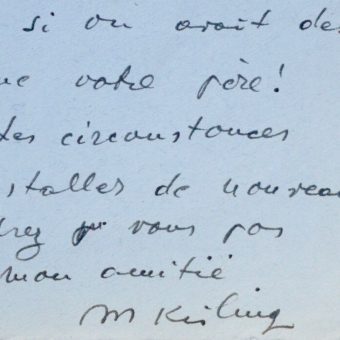 si on avait des
ue votre père!
tes circonstances
staller de nouveau
drez vous pas
mon amitié
M Kisling